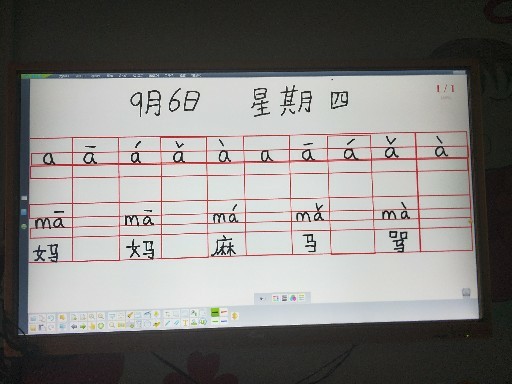 9月6日 星期四
1/1
a ā á ǎ à a ā á ǎ à
mā mā má mǎ mà
妈 妈 麻 马 骂